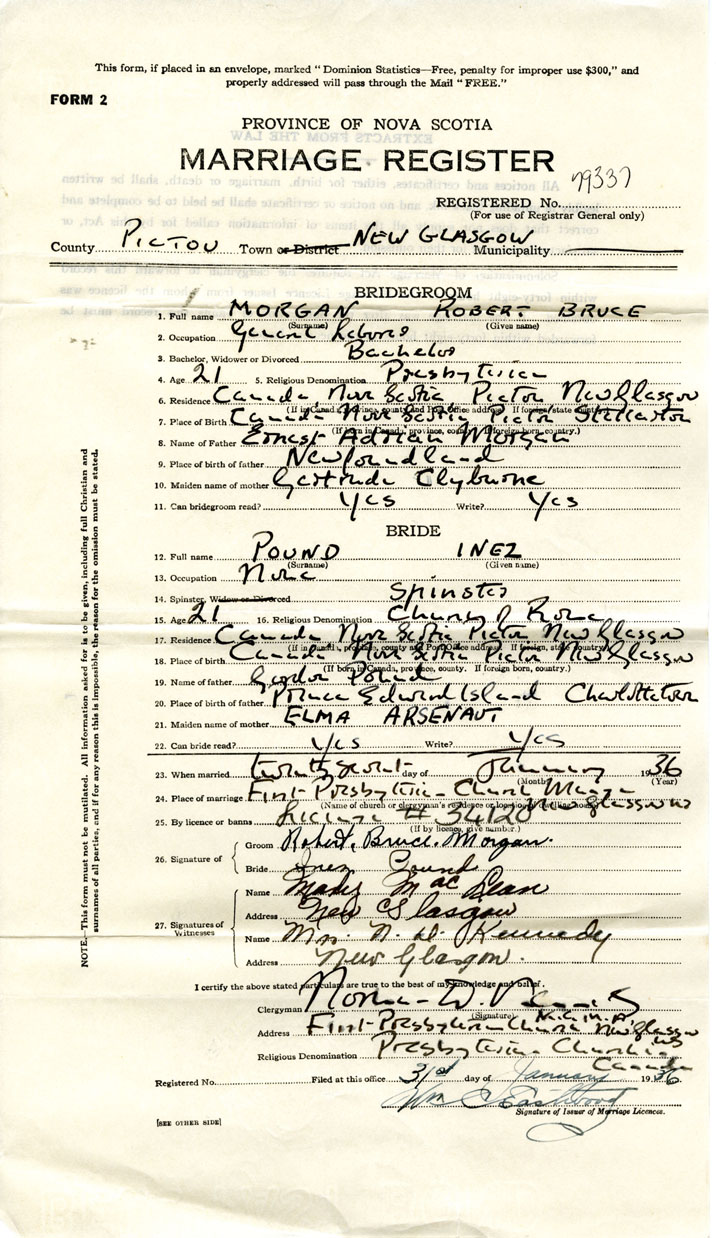 This form, if placed in an envelope, marked "Dominion Statistics—Free, penalty for improper use $300," and
properly addressed will pass through the Mail "FREE."
FORM 2
PROVINCE OF NOVA SCOTIA
MARRIAGE REGISTER
79337
REGISTERED No.
(For use of Registrar General only)
County PICTOU Town or District NEW GLASGOW Municipality
BRIDEGROOM
1. Full name MORGAN ROBERT BRUCE
(Surname) (Given name)
2. Occupation General Laborer
3. Bachelor, Widower or Divorced Bachelor
4. Age 21 5. Religious Denomination Presbyterian
6. Residence Canada Nova Scotia Pictou New Glasgow
(If in Canada, province, county and Post Office address. If foreign, state country.)
7. Place of Birth Canada Nova Scotia Pictou Stellarton
(If born in Canada, province, county. If foreign born, country.)
8. Name of Father Ernest Adrian Morgan
9. Place of birth of father Newfoundland
10. Maiden name of mother Gertrude Clyburne
11. Can bridegroom read? Yes Write? Yes
BRIDE
12. Full name POUND INEZ
(Surname) (Given name)
13. Occupation None
14. Spinster, Widow or Divorced Spinster
15. Age 21 16. Religious Denomination Church of Rome
17. Residence Canada Nova Scotia Pictou New Glasgow
(If in Canada, province, county and Post Office address. If foreign, state country.)
18. Place of birth Canada Nova Scotia Pictou New Glasgow
(If born in Canada, province, county. If foreign born, country.)
19. Name of father Gordon Pound
20. Place of birth of father Prince Edward Island Charlottetown
21. Maiden name of mother ELMA ARSENAUT
22. Can bride read? Yes Write? Yes
23. When married day of January 1936
(Month) (Year)
24. Place of marriage First Presbyterian Church Manse
(Name of church or clergyman's residence or New Glasgow NS
25. By licence or banns License # 34120
(If by licence, give number.)
26. Signature of
Groom Robert, Bruce. Morgan.
Bride Inez Pound
27. Signatures of Witnesses
Name Mac Lean
Address New Glasgow
Name Mrs. N. D. Kennedy
Address New Glasgow.
I certify the above stated particulars are true to the best of my knowledge and belief.
Clergyman Norman D. Kennedy
(Signature)
Address First Presbyterian Church New Glasgow NS
Religious Denomination Presbyterian Church in Canada
Registered No. Filed at this office 31st day of January 1936
Wm C Eastwood
Signature of Issuer of Marriage Licences.
[SEE OTHER SIDE]
NOTE.—This form must not be mutilated. All information asked for is to be given, including full Christian and
surnames of all parties, and if for any reason this is impossible, the reason for the omission must be stated.